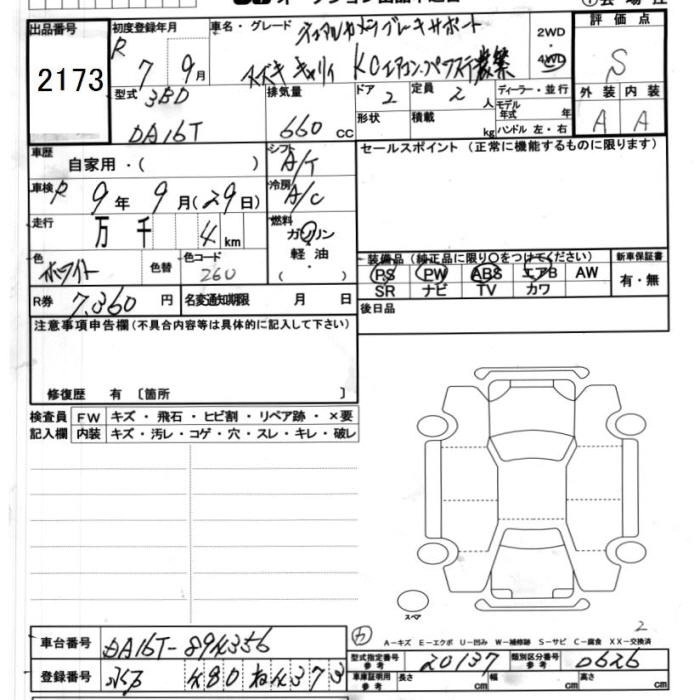 出品番号 初度登録年月 車名・グレード デュアルカメラブレーキサポート 2WD 評価点
2173 R 7 9月 スズキ キャリイ KCエアコン・パワステ農繁 4WD S
型式 3BD 排気量 ドア 2 定員 2 人 ディーラー・並行 外装 内装
DA16T 660 cc 形状 積載 kg モデル年式 年 ハンドル 左・右 A A
車歴 自家用・( ) シフト A/T セールスポイント (正常に機能するものに限ります)
車検 R 9年 9月(29日) 冷房 A/C
走行 万 千 4 km 燃料 ガソリン
軽油
色 ホワイト 色替 色コード 260 ( ・ )
装備品 (純正品に限り○をつけてください) 新車保証書
PS PW ABS エアB AW 有・無
SR ナビ TV カワ
R券 7,360 円 名変通知期限 月 日 後日品
注意事項申告欄(不具合内容等は具体的に記入して下さい)
修復歴 有 〔箇所 〕
検査員 FW キズ・飛石・ヒビ割・リペア跡・×要
記入欄 内装 キズ・汚レ・コゲ・穴・スレ・キレ・破レ
スペア
2
カ A-キズ E-エクボ U-凹み W-補修跡 S-サビ C-腐食 XX-交換済
車台番号 DA16T-894356
型式指定番号 参考 20137 類別区分番号 参考 0626
登録番号 480 ね 4373
車庫証明用 参考 長さ cm 幅 cm 高さ cm